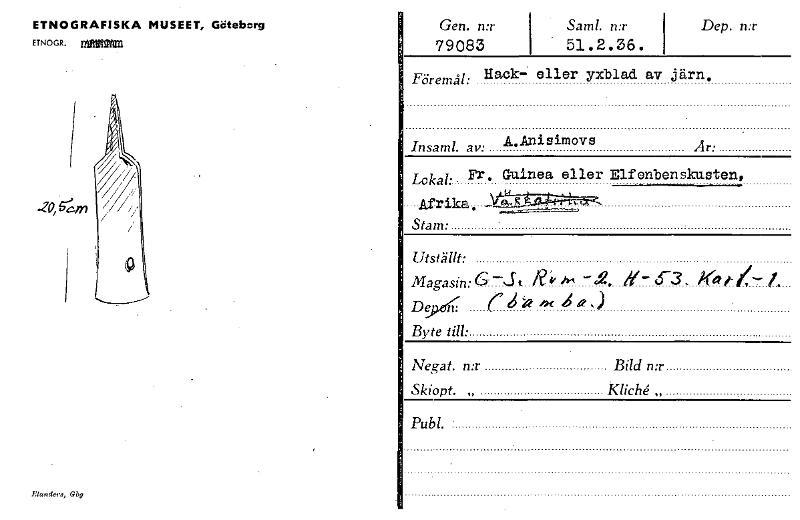 ETNOGRAFISKA MUSEET, Göteborg
ETNOGR.
20,5cm
Elanders, Gbg
Gen. n:r Saml. n:r Dep. n:r
79083 51.2.36.
Föremål: Hack- eller yxblad av järn.
Insaml. av: A.Anisimovs År:
Lokal: Fr. Guinea eller Elfenbenskusten,
Afrika. Västafrika
Stam:
Utställt:
Magasin: G-S. Rum-2. H-53. Kart.-1.
Depon: (bamba.)
Byte till:
Negat. n:r Bild n:r
Skiopt. „ Kliché „
Publ.